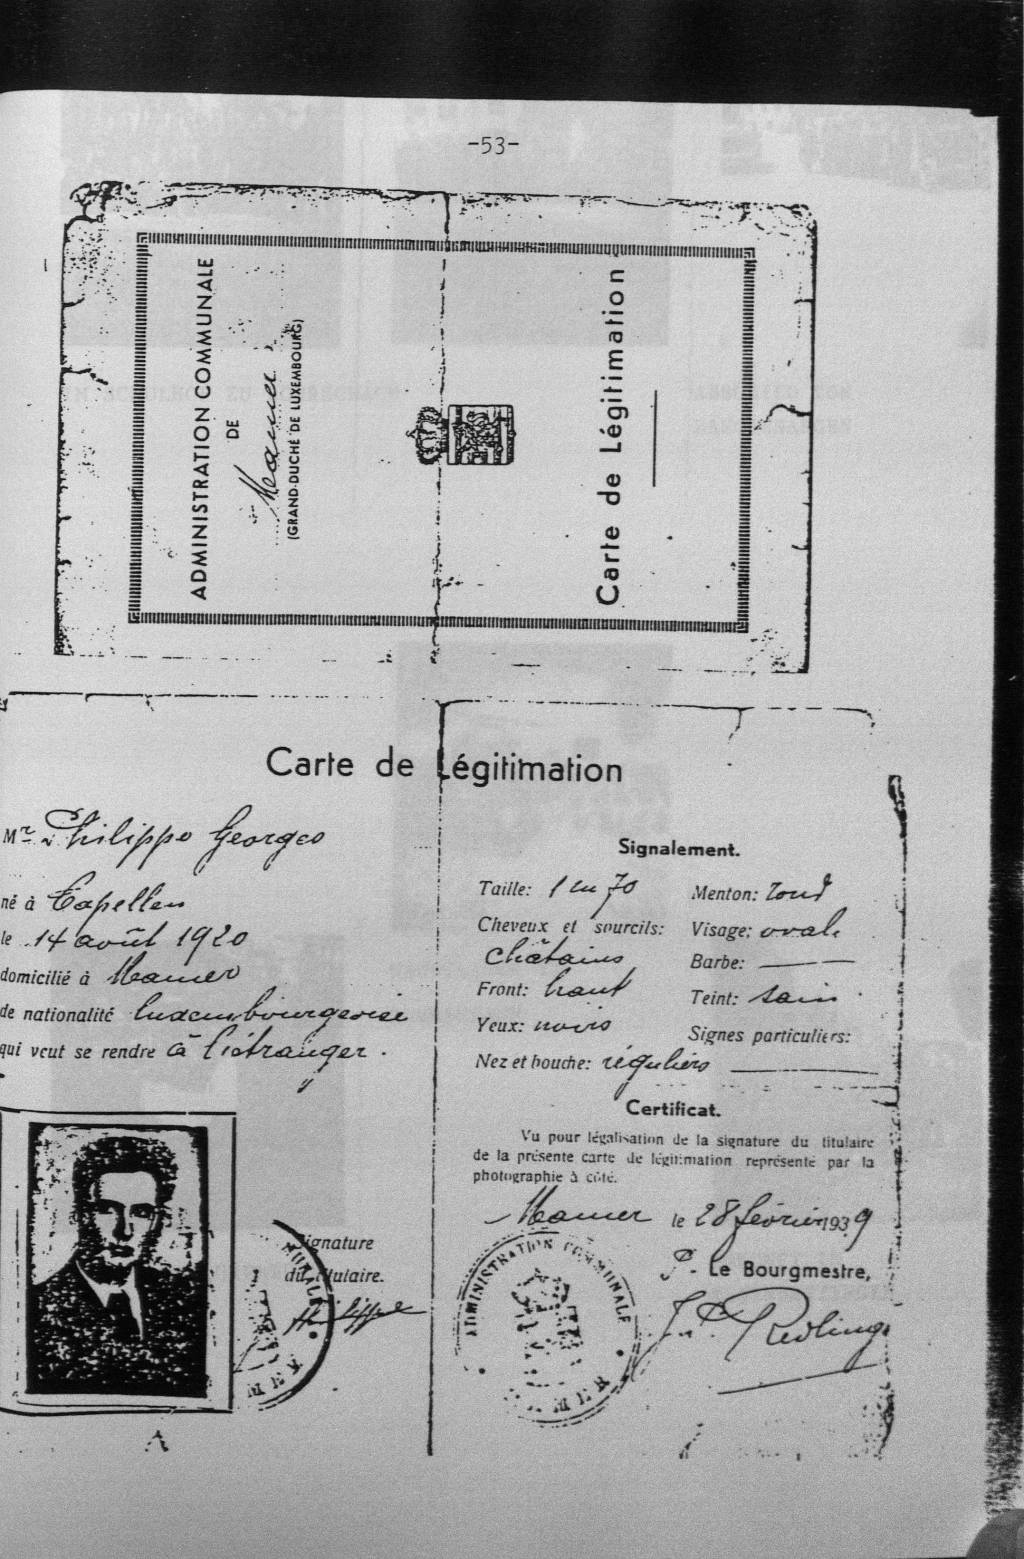 -53-
ADMINISTRATION COMMUNALE
DE
Mamer
(GRAND-DUCHÉ DE LUXEMBOURG)
Carte de Légitimation
Carte de Légitimation
Mr Philippe Georges
né à Capellen
le 14 août 1920
domicilié à Mamer
de nationalité luxembourgeoise
qui veut se rendre à l'étranger.
Signature
du titulaire.
Philippe
Signalement.
Taille: 1 m 70
Cheveux et sourcils:
châtains
Front: haut
Yeux: noirs
Nez et bouche: réguliers
Menton: rond
Visage: ovale
Barbe: —
Teint: sain
Signes particuliers:
—
Certificat.
Vu pour légalisation de la signature du titulaire
de la présente carte de légitimation représenté par la
photographie à côté.
Mamer le 28 février 1939
P. Le Bourgmestre,
ADMINISTRATION COMMUNALE
MER